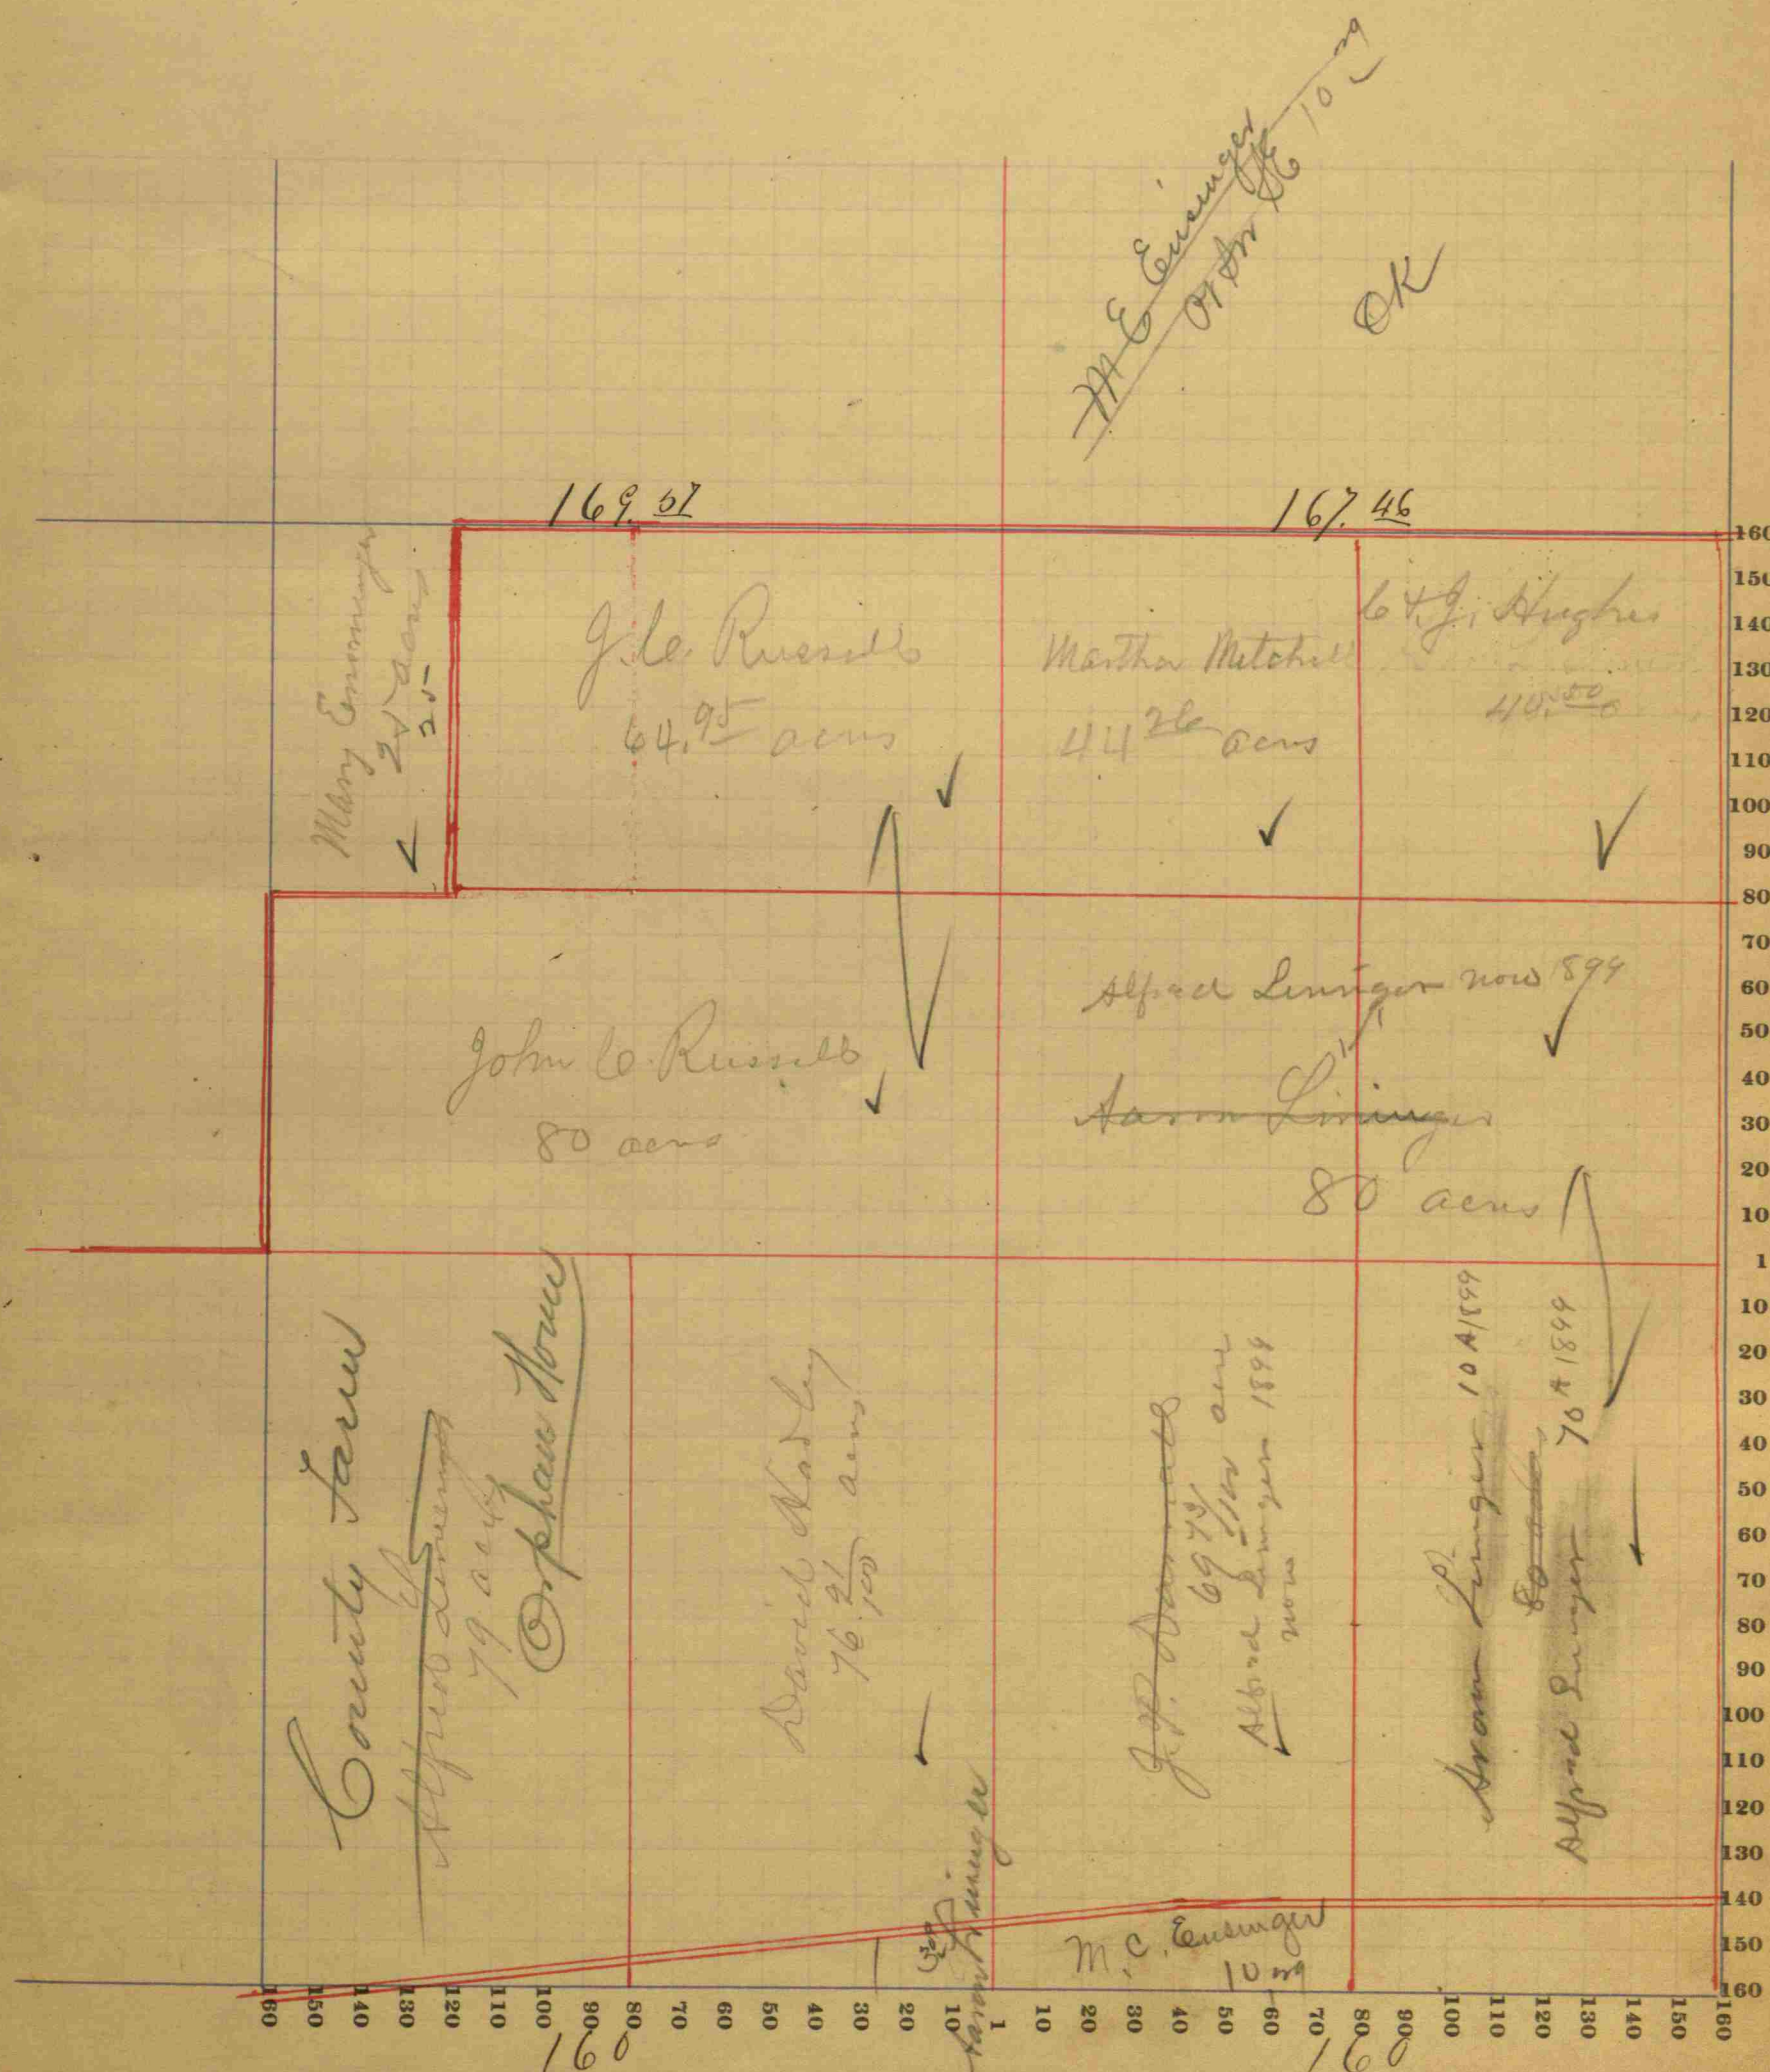 M E Ensinger
10
OK
169.57
167.46
Mary Ensminger
25 acres
25
J. C. Russell
64.95 acres
Martha Mitchell
44 26 acres
C & J. Hughes
40.50
Alfred Leninger now 1899
John C. Russell
80 acres
Aaron Lininger
80 acres
County Farm
Alfred Leninger
79 acres
Orphans Home
David
76 91/100 acres
J.
69 73/100 acre
Alfred Leninger 1899
now
Aaron Lininger 10 A 1899
80 acres
Alfred Lininger 70 A 1899
Aaron Lininger
M. C. Ensinger
10
160
150
140
130
120
110
100
90
80
70
60
50
40
30
20
10
1
10
20
30
40
50
60
70
80
90
100
110
120
130
140
150
160
160 150 140 130 120 110 100 90 80 70 60 50 40 30 20 10 1 10 20 30 40 50 60 70 80 90 100 110 120 130 140 150 160
160
160